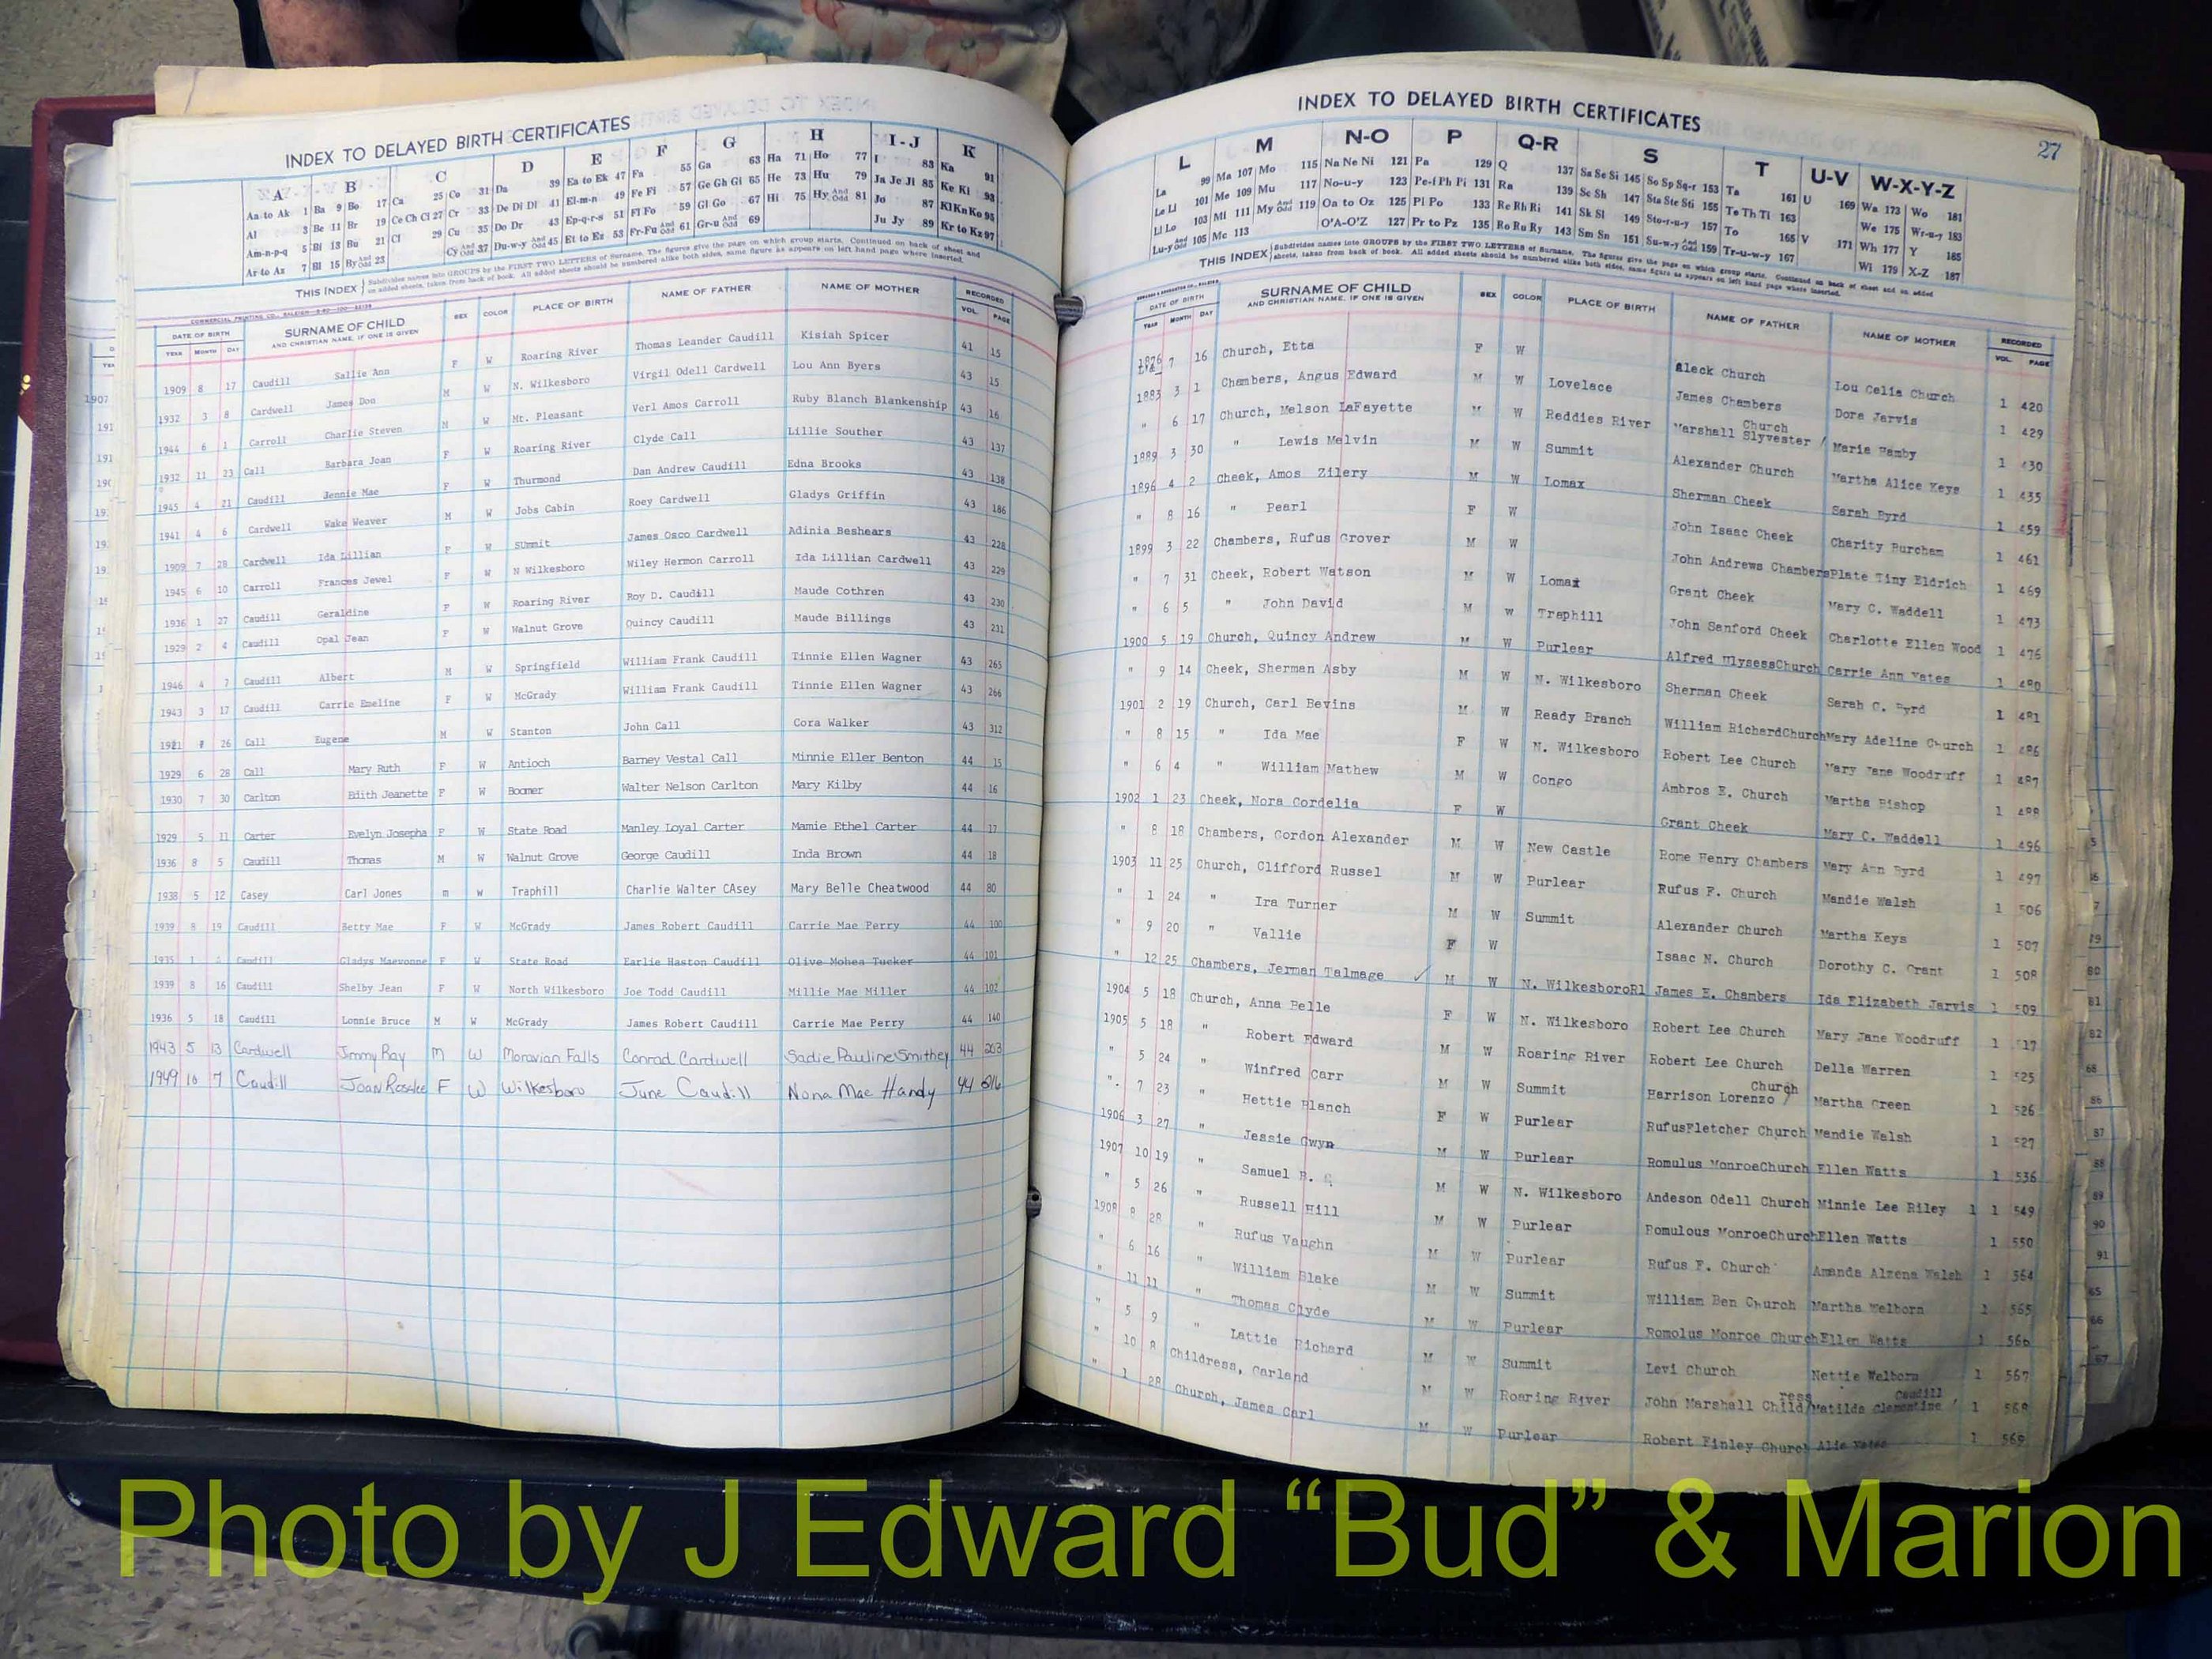 INDEX TO DELAYED BIRTH CERTIFICATES
A B C D E F G H I-J K
Aa to Ak 1 Ba 9 Bo 17 Ca 25 Co 31 Da 39 Ea to Ek 47 Fa 55 Ga 63 Ha 71 Ho 77 I 83 Ka 91
Al 3 Be 11 Br 19 Ce Ch Ci 27 Cr 33 De Di Dl 41 El-m-n 49 Fe Fi 57 Ge Gh Gi 65 He 73 Hu 79 Ja Je Ji 85 Ke Ki 93
Am-n-p-q 5 Bi 13 Bu 21 Cl 29 Cu 35 Do Dr 43 Ep-q-r-s 51 Fl Fo 59 Gl Go 67 Hi 75 Hy And Odd 81 Jo 87 Kl Kn Ko 95
Ar to Az 7 Bl 15 By And Odd 23 Cy And Odd 37 Du-w-y And Odd 45 Et to Ez 53 Fr-Fu And Odd 61 Gr-u And Odd 69 Ju Jy 89 Kr to Kz 97
THIS INDEX Subdivides names into GROUPS by the FIRST TWO LETTERS of Surname. The figures give the page on which group starts. Continued on back of sheet and
on added sheets, taken from back of book. All added sheets should be numbered alike both sides, same figure as appears on left hand page where inserted.
COMMERCIAL PRINTING CO., RALEIGH
DATE OF BIRTH SURNAME OF CHILD AND CHRISTIAN NAME, IF ONE IS GIVEN SEX COLOR PLACE OF BIRTH NAME OF FATHER NAME OF MOTHER RECORDED
YEAR MONTH DAY VOL. PAGE
1909 8 17 Caudill Sallie Ann F W Roaring River Thomas Leander Caudill Kisiah Spicer 41 15
1932 3 8 Cardwell James Don M W N. Wilkesboro Virgil Odell Cardwell Lou Ann Byers 43 15
1944 6 1 Carroll Charlie Steven M W Mt. Pleasant Verl Amos Carroll Ruby Blanch Blankenship 43 16
1932 11 23 Call Barbara Joan F W Roaring River Clyde Call Lillie Souther 43 137
1945 4 21 Caudill Jennie Mae F W Thurmond Dan Andrew Caudill Edna Brooks 43 138
1941 4 6 Cardwell Wake Weaver M W Jobs Cabin Roey Cardwell Gladys Griffin 43 186
1909 7 28 Cardwell Ida Lillian F W SUmmit James Osco Cardwell Adinia Beshears 43 228
1945 6 10 Carroll Frances Jewel F W N Wilkesboro Wiley Hermon Carroll Ida Lillian Cardwell 43 229
1936 1 27 Caudill Geraldine F W Roaring River Roy D. Caudill Maude Cothren 43 230
1929 2 4 Caudill Opal Jean F W Walnut Grove Quincy Caudill Maude Billings 43 231
1946 4 7 Caudill Albert M W Springfield William Frank Caudill Tinnie Ellen Wagner 43 265
1943 3 17 Caudill Carrie Emeline F W McGrady William Frank Caudill Tinnie Ellen Wagner 43 266
1921 26 Call Eugene M W Stanton John Call Cora Walker 43 312
1929 6 28 Call Mary Ruth F W Antioch Barney Vestal Call Minnie Eller Benton 44 15
1930 7 30 Carlton Edith Jeanette F W Boomer Walter Nelson Carlton Mary Kilby 44 16
1929 5 11 Carter Evelyn Josepha F W State Road Manley Loyal Carter Mamie Ethel Carter 44 17
1936 8 5 Caudill Thomas M W Walnut Grove George Caudill Inda Brown 44 18
1938 5 12 Casey Carl Jones m w Traphill Charlie Walter CAsey Mary Belle Cheatwood 44 80
1939 8 19 Caudill Betty Mae F W McGrady James Robert Caudill Carrie Mae Perry 44 100
1935 1 Caudill Gladys Maevonne F W State Road Earlie Haston Caudill Olive Mohea Tucker 44 101
1939 8 16 Caudill Shelby Jean F W North Wilkesboro Joe Todd Caudill Millie Mae Miller 44 102
1936 5 18 Caudill Lonnie Bruce M W McGrady James Robert Caudill Carrie Mae Perry 44 140
1943 5 13 Cardwell Jimmy Ray M W Moravian Falls Conrad Cardwell Sadie Pauline Smithey 44 203
1949 10 7 Caudill Joan Rosalee F W Wilkesboro June Caudill Nona Mae Handy 44
27
INDEX TO DELAYED BIRTH CERTIFICATES
L M N-O P Q-R S T U-V W-X-Y-Z
La 99 Ma 107 Mo 115 Na Ne Ni 121 Pa 129 Q 137 Sa Se Si 145 So Sp Sq-r 153 Ta 161 U 169 Wa 173 Wo 181
Le Li 101 Me 109 Mu 117 No-u-y 123 Pe-f Ph Pi 131 Ra 139 Sc Sh 147 Sta Ste Sti 155 Te Th Ti 163 We 175 Wr-u-y 183
Ll Lo 103 Mi 111 My And Odd 119 Oa to Oz 125 Pl Po 133 Re Rh Ri 141 Sk Sl 149 Sto-r-u-y 157 To 165 V 171 Wh 177 Y 185
Lu-y And Odd 105 Mc 113 O'A-O'Z 127 Pr to Pz 135 Ro Ru Ry 143 Sm Sn 151 Su-w-y And Odd 159 Tr-u-w-y 167 Wi 179 X-Z 187
THIS INDEX Subdivides names into GROUPS by the FIRST TWO LETTERS of Surname. The figures give the page on which group starts. Continued on back of sheet and on added
sheets, taken from back of book. All added sheets should be numbered alike both sides, same figure as appears on left hand page where inserted.
DATE OF BIRTH SURNAME OF CHILD AND CHRISTIAN NAME, IF ONE IS GIVEN SEX COLOR PLACE OF BIRTH NAME OF FATHER NAME OF MOTHER RECORDED
YEAR MONTH DAY VOL. PAGE
1876 7 16 Church, Etta F W Aleck Church Lou Celia Church 1 420
1883 3 1 Chambers, Angus Edward M W Lovelace James Chambers Dora Jarvis 1 429
" 6 17 Church, Melson LaFayette M W Reddies River Marshall Slyvester / Church Maria Hamby 1 430
1889 3 30 " Lewis Melvin M W Summit Alexander Church Martha Alice Keys 1 435
1896 4 2 Cheek, Amos Zilery M W Lomax Sherman Cheek Sarah Byrd 1 459
" 8 16 " Pearl F W John Isaac Cheek Charity Burcham 1 461
1899 3 22 Chambers, Rufus Grover M W John Andrews Chambers Plate Tiny Eldrich 1 469
" 7 31 Cheek, Robert Watson M W Lomax Grant Cheek Mary C. Waddell 1 473
" 6 5 " John David M W Traphill John Sanford Cheek Charlotte Ellen Wood 1 476
1900 5 19 Church, Quincy Andrew M W Purlear Alfred UlysessChurch Carrie Ann Yates 1 480
" 9 14 Cheek, Sherman Asby M W N. Wilkesboro Sherman Cheek Sarah C. Byrd 1 481
1901 2 19 Church, Carl Bevins M W Ready Branch William RichardChurch Mary Adeline Church 1 486
" 8 15 " Ida Mae F W N. Wilkesboro Robert Lee Church Mary Jane Woodruff 1 487
" 6 4 " William Mathew M W Congo Ambros E. Church Martha Bishop 1 488
1902 1 23 Cheek, Nora Cordelia F W Grant Cheek Mary C. Waddell 1 496
" 8 18 Chambers, Gordon Alexander M W New Castle Rome Henry Chambers Mary Ann Byrd 1 497
1903 11 25 Church, Clifford Russel M W Purlear Rufus F. Church Mandie Walsh 1 506
" 1 24 " Ira Turner M W Summit Alexander Church Martha Keys 1 507
" 9 20 " Vallie F W Isaac N. Church Dorothy C. Grant 1 508
" 12 25 Chambers, Jerman Talmage ✓ M W N. WilkesboroR1 James E. Chambers Ida Elizabeth Jarvis 1 509
1904 5 18 Church, Anna Belle F W N. Wilkesboro Robert Lee Church Mary Jane Woodruff 1 517
1905 5 18 " Robert Edward M W Roaring River Robert Lee Church Della Warren 1 525
" 5 24 " Winfred Carr M W Summit Harrison Lorenzo / Church Martha Green 1 526
" 7 23 " Hettie Blanch F W Purlear RufusFletcher Church Mandie Walsh 1 527
1906 3 27 " Jessie Gwyn M W Purlear Romulus MonroeChurch Ellen Watts 1 536
1907 10 19 " Samuel R. M W N. Wilkesboro Andeson Odell Church Minnie Lee Riley 1 1 549
" 5 26 " Russell Hill M W Purlear Romulous MonroeChurch Ellen Watts 1 550
1908 8 28 " Rufus Vaughn M W Purlear Rufus F. Church Amanda Alzena Walsh 1 564
" 6 16 " William Blake M W Summit William Ben Church Martha Welborn 1 565
" 11 11 " Thomas Clyde M W Purlear Romolus Monroe Church Ellen Watts 1 566
" 5 9 " Lattie Richard M W Summit Levi Church Nettie Welborn 1 567
" 10 8 Childress, Garland M W Roaring River John Marshall Child/ress Matilda Clementine / Caudill 1 568
" 1 28 Church, James Carl M W Purlear Robert Finley Church Alie Yates 1 569
Photo by J Edward “Bud” & Marion